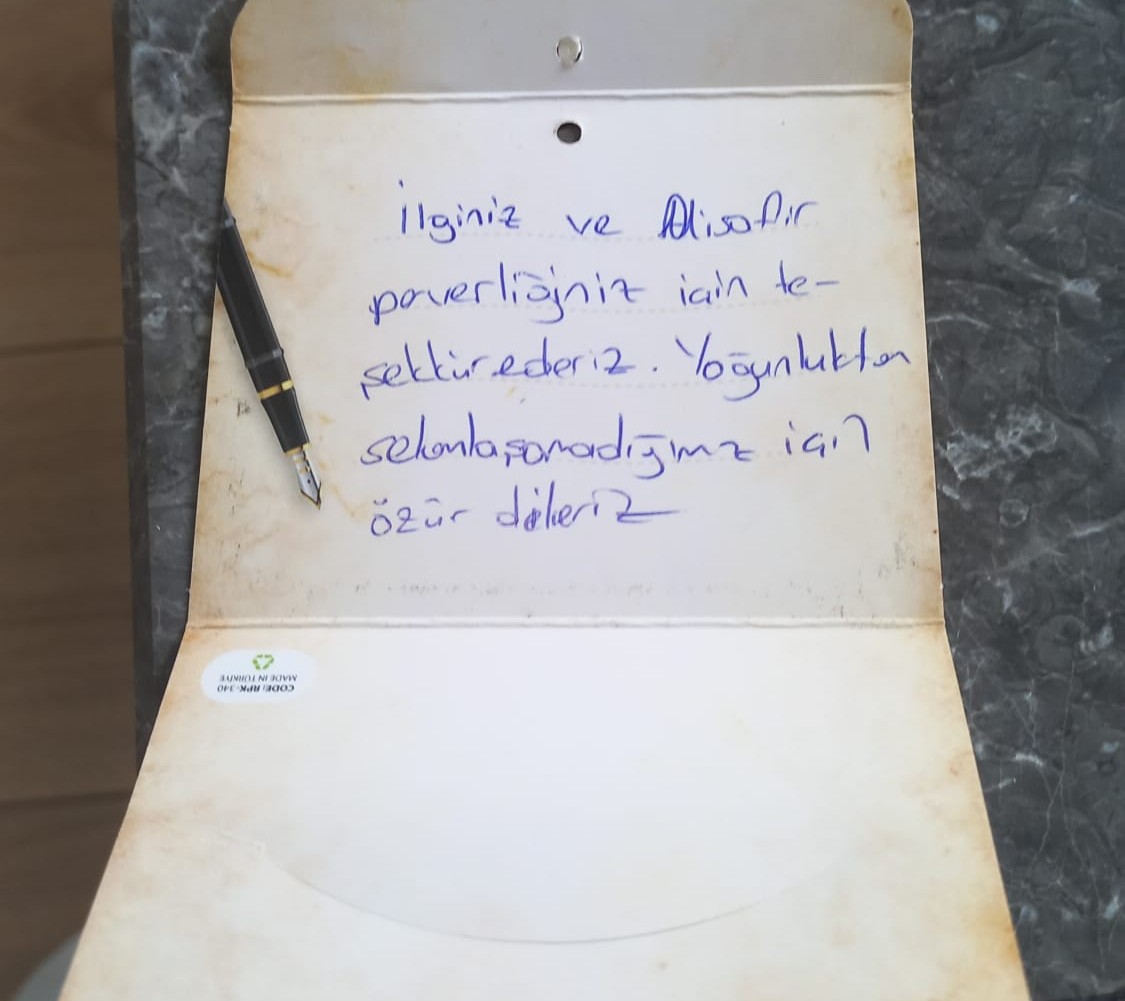 İlginiz ve Misafir
perverliğiniz için te-
şekkür ederiz. Yoğunluktan
selamlaşamadığımız için
özür dileriz
CODE: RPK-340
MADE IN TÜRKİYE